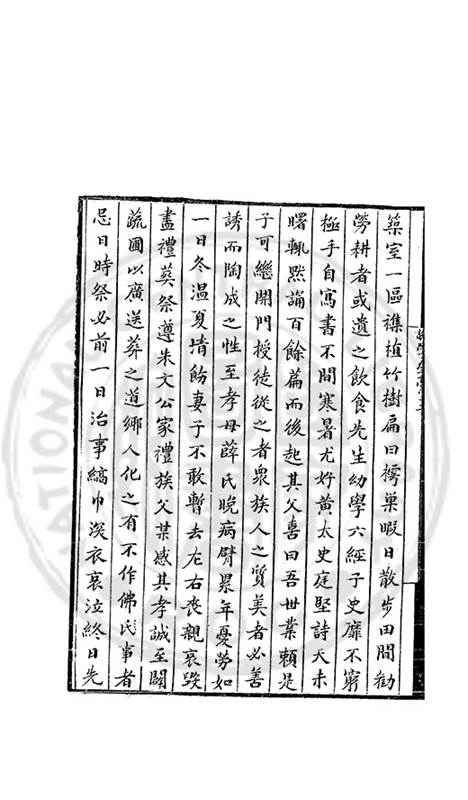 築室一區襍植竹樹扁曰樗巢暇日散步田間勸
勞耕者或遺之飲食先生幼學六經子史靡不窮
極手自寫書不間寒暑尤好黃太史庭堅詩天未
曙輒默誦百餘篇而後起其父喜曰吾世業賴是
子可繼開門授徒從之者眾族人之質美者必善
誘而陶成之性至孝母薛氏晚病臂累年憂勞如
一日冬溫夏凊飭妻子不敢暫去左右喪親哀毀
盡禮葬祭遵朱文公家禮族父某感其孝誠至闢
蔬圃以廣送葬之道鄉人化之有不作佛氏事者
忌日時祭必前一日治事縞巾深衣哀泣終日先